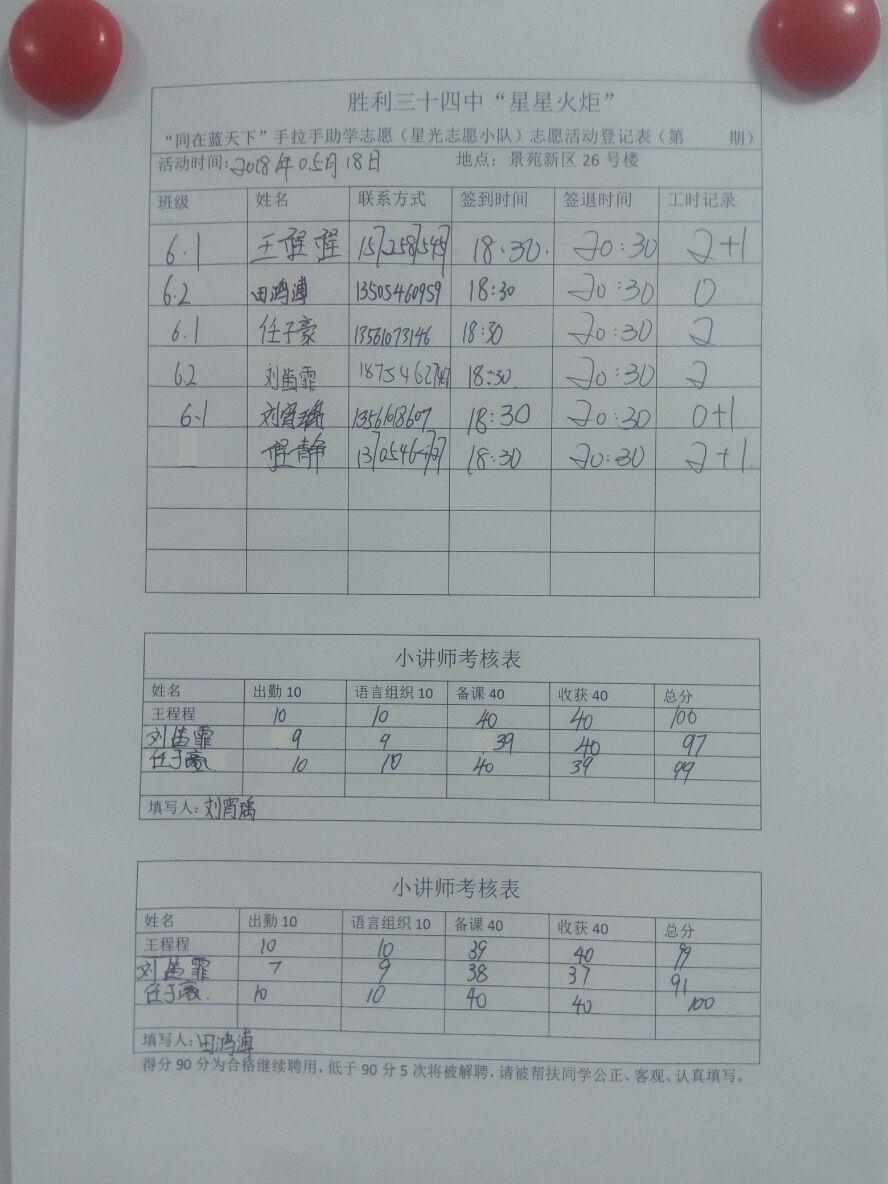 胜利三十四中“星星火炬”
“同在蓝天下”手拉手助学志愿（星光志愿小队）志愿活动登记表（第 期）
活动时间：2018年05月18日 地点：景苑新区26号楼
班级 姓名 联系方式 签到时间 签退时间 工时记录
6.1 王程程 15725871545 18:30. 20:30 2+1
6.2 田鸿溥 13505460959 18:30 20:30 0
6.1 任子豪 13561073146 18:30 20:30 2
6.2 刘茜霏 18:30. 20:30 2
6.1 刘宵瑀 1356108607 18:30 20:30 0+1
程静 18:30 20:30 2+1.
小讲师考核表
姓名 出勤10 语言组织10 备课40 收获40 总分
王程程 10 10 40 40 100
刘茜霏 9 9 39 40 97
任子豪 10 10 40 39 99
填写人：刘宵瑀
小讲师考核表
姓名 出勤10 语言组织10 备课40 收获40 总分
王程程 10 10 39 40 99
刘茜霏 7 9 38 37 91
任子豪. 10 10 40 40 100
填写人：田鸿溥
得分90分为合格继续聘用，低于90分5次将被解聘，请被帮扶同学公正、客观、认真填写。